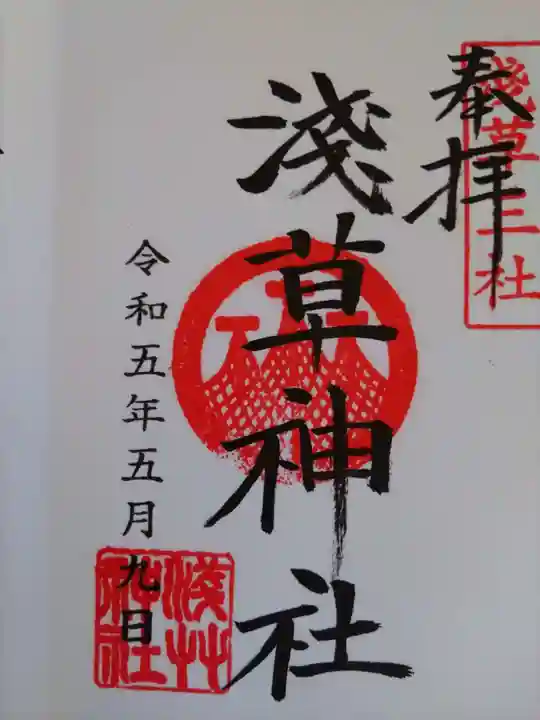 奉拝
淺草三社
淺草神社
令和五年五月九日
淺草神社